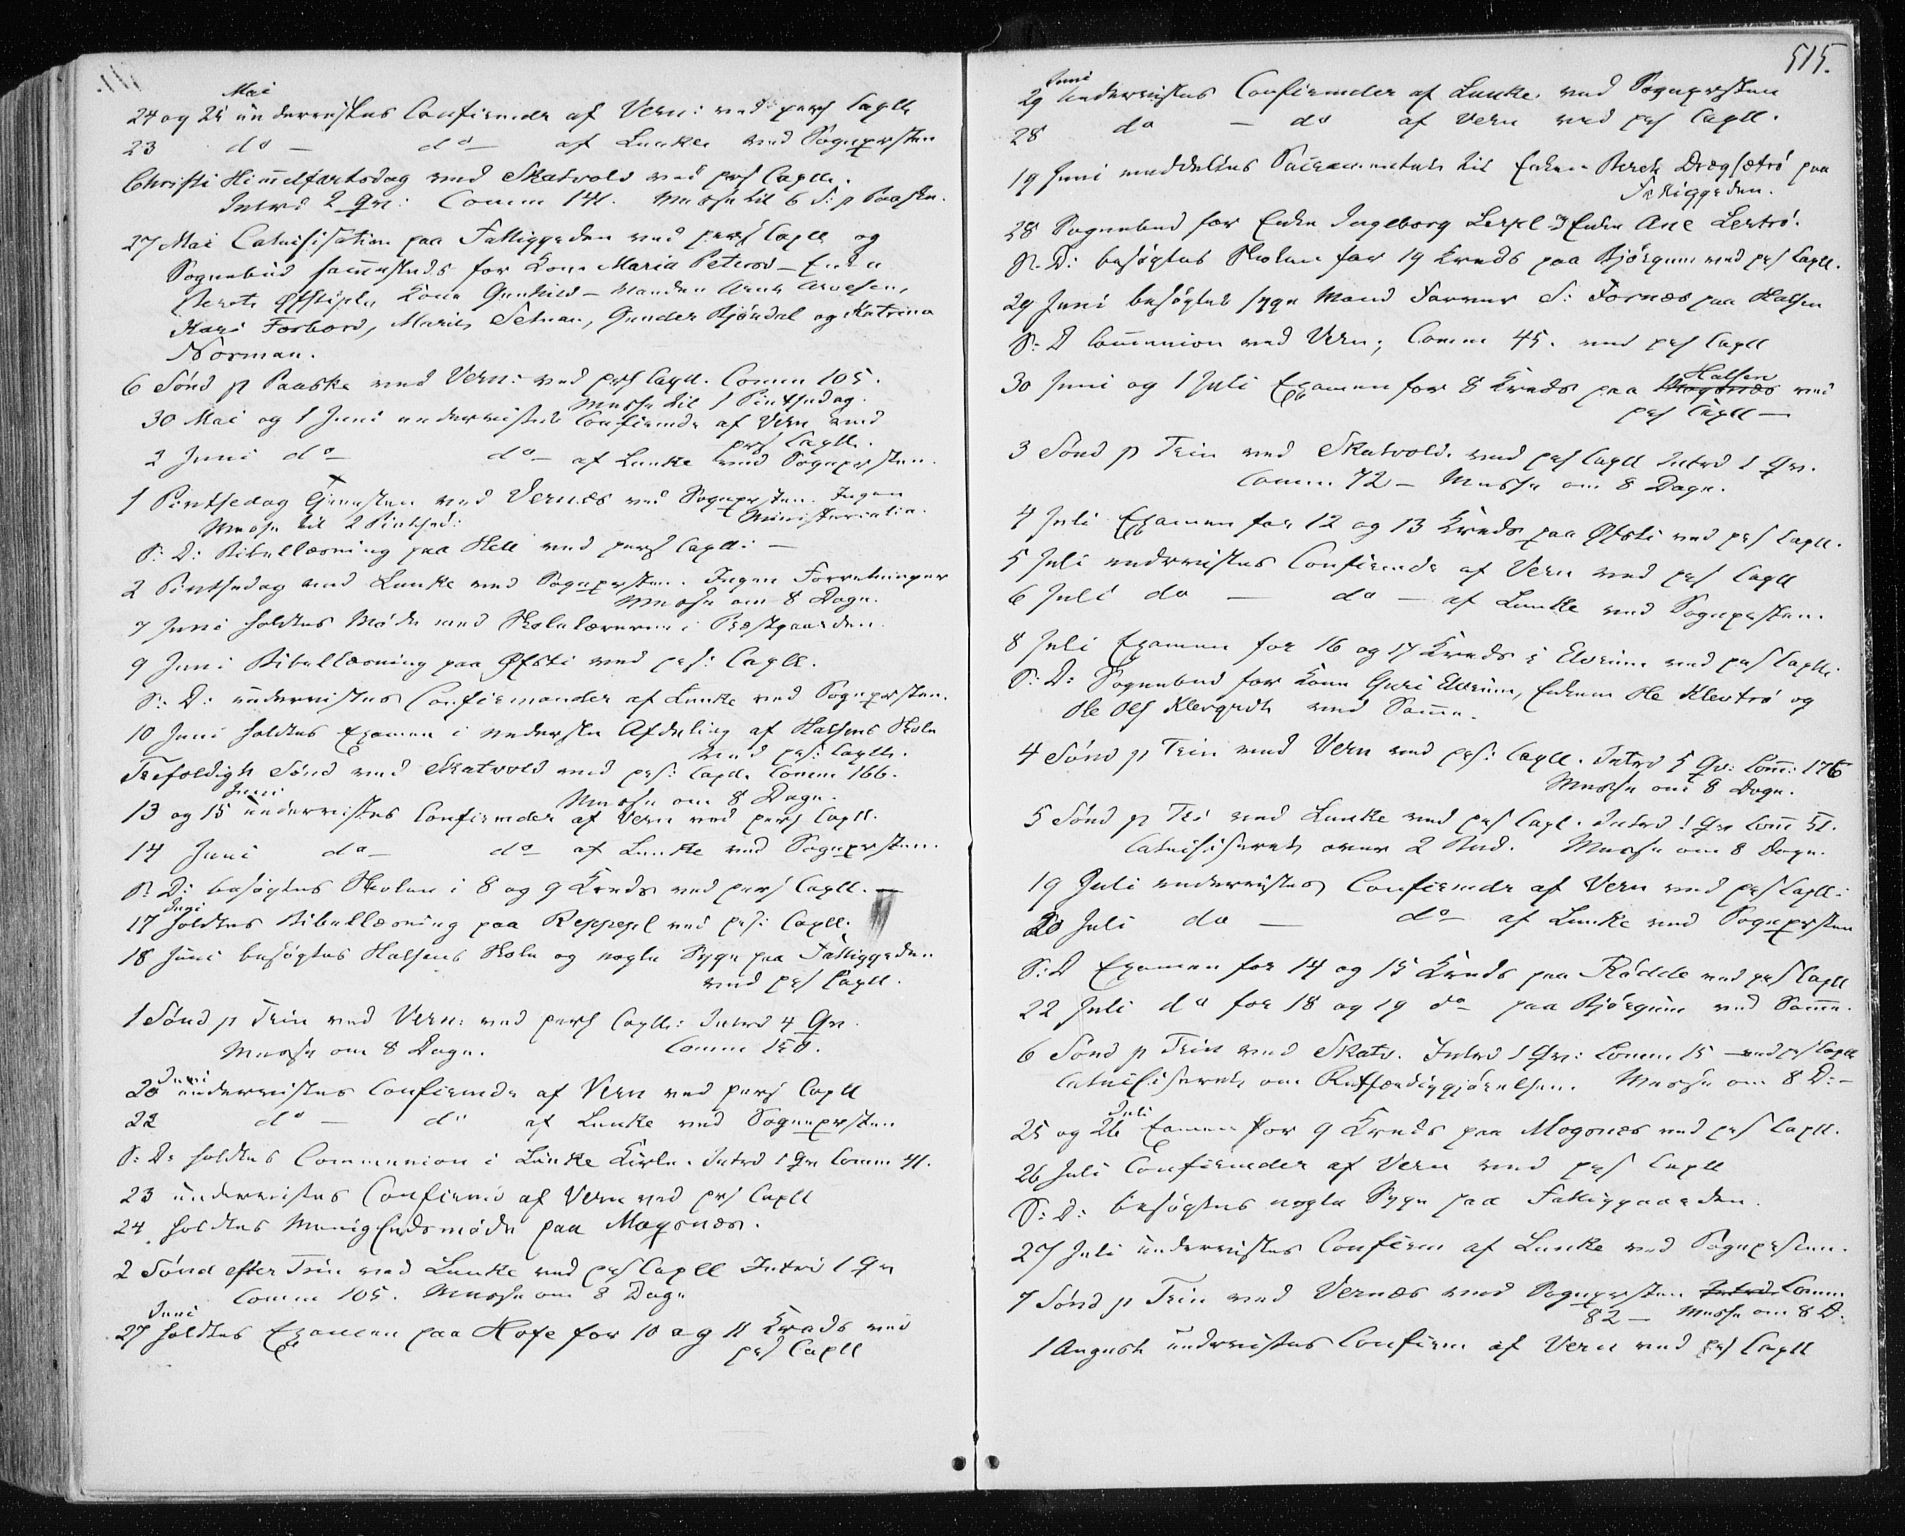 Mai
24 og 25 undervistes Confirmder af Vern: ved pers Capll
23 do – do – af Lanke ved Sognepresten
Christi Himmelfartsdag ved Skatvold ved pers Capll.
Introd 2 Qv: Comm 141. Messe til 6 S: p Paaske.
27 Mai Catechisation paa Fattiggaarden ved pers Capll og
Sognebud sammesteds for Kone Maria Petersd – Enke
Kone Gunhild – Manden Arnt Arvesen,
Kari Forbord, Marit Setnan, Gunder Kjøndal og Katrina
Norman.
6 Sønd p Paaske ved Vern: ved pers Capll. Comm 105.
Messe til 1 Pintsedag.
30 Mai og 1 Juni undervistes Confirmde af Vern ved
pers Capll.
2 Juni do do – af Lanke ved Sognepresten.
1 Pintsedag Tjenesten ved Vernæs ved Sognepresten. Ingen
Messe til 2 Pintsed: Ministerialia.
S: D: Bibellæsning paa Hell ved pers Capll: –
2 Pintsedag ved Lanke ved Sognepresten. Ingen Forretninger
Messe om 8 Dage.
7 Juni holdtes Møde med Skolelærerne i Præstgaarden.
9 Juni Bibellæsning paa Øfsti ved pers: Capll.
S: D: undervistes Confirmander af Lanke ved Sognepresten.
10 Juni holdtes Examen i nederste Afdeling af Halsens Skole
ved pers: Capll.
Trefoldigh Sønd ved Skatvold ved pers: Capl. Comm 166.
Juni Messe om 8 Dage.
13 og 15 undervistes Confirmder af Vern ved pers Capll.
14 Juni do – do af Lanke ved Sognepresten.
S: D: besøgtes Skolen i 8 og 9 Kreds ved pers Capll. –
Juni
17 holdtes Bibellæsning paa Reppesl ved pers: Capll.
18 Juni besøgtes Halsens Skole og nogle Syge paa Fattiggaarden
ved pers Capll.
1 Sønd p Trin ved Vern: ved pers Capll: Introd 4 Qv.
Messe om 8 Dage. Comm 150.
Juni
20 undervistes Confirmde af Vern ved pers Capll
22 do – do af Lanke ved Sognepresten
S: D: holdtes Communion i Lanke Kirke. Introd 1 Qv Comm 41.
23 undervistes Confirmd af Vern ved pers Capll
24. holdtes Menighedsmøde paa Mogsnæs.
2 Sønd efter Trin ved Lanke ved pers Capll Introd 1 Qv
Comm 105. Messe om 8 Dage
Juni
27 holdtes Examen paa Hofe for 10 og 11 Kreds ved
pers Capll
515.
Juni
29 undervistes Confirmder af Lanke ved Sognepresten
28 do – do af Vern ved pers Capll.
19 Juni meddeltes Sacramentet til Enken Beret Drogsætrø paa
Fattiggaarden.
28 Sognebud for Enke Ingeborg og Enke Ane Lertrø.
S: D: besøgtes Skolen for 19 Kreds paa Bjørgum ved pers Capll.
29 Juni besøgtes syge Mand S: Fornæs paa Halsen
S: D Communion ved Vern; Comm 45. ved pers Capll
30 Juni og 1 Juli Examen for 8 Kreds paa Mogsnæs Halsen ved
pers Capll –
3 Sønd p Trin ved Skatvold ved pers Capll Introd 1 Qv.
Comm 72 – Messe om 8 Dage.
4 Juli Examen for 12 og 13 Kreds paa Øfsti ved pers Capll.
5 Juli undervistes Confirmde af Vern ved pers Capll
6 Juli do – do – af Lanke ved Sognepresten.
8 Juli Examen for 16 og 17 Kreds i Elvrum ved pers Capll.
S: D: Sognebud for Kone Guri Elvrum, Enkem Ole Klevtrø og
Ole Ols ved Samme.
4 Sønd p Trin ved Vern ved pers: Capll. Introd 5 Qv: Com: 176
Messe om 8 Dage.
5 Sønd p Tri ved Lanke ved pers Capl. Introd 1 Qv Comm 51.
Catechiseret over 2 Bud. Messe om 8 Dage.
19 Juli undervistes Confirmde af Vern ved pers Capll:
20 Juli do – do – af Lanke ved Sognepresten
S: D Examen for 14 og 15 Kreds paa Rådde ved pers Capll
22 Juli do for 18 og 19 do – paa Bjørgum ved Samme.
6 Sønd p Trin ved Skatv. Introd 1 Qv: Comm 15 – ved pers Capll
Catechiseret om Retfærdiggjørelsen. Messe om 8 D: –
Juli
25 og 26 Examen for 9 Kreds paa Mogsnæs ved pers Capll.
26 Juli Confirmder af Vern ved pers Capll
S: D: besøgtes nogle Syge paa Fattiggaarden.
27 Juli undervistes Confirm af Lanke ved Sognepresten.
7 Sønd p Trin ved Vernæs ved Sognepresten Introd Comm
82 – Messe om 8 D:
1 August undervistes Confirm af Vern ved pers Capll